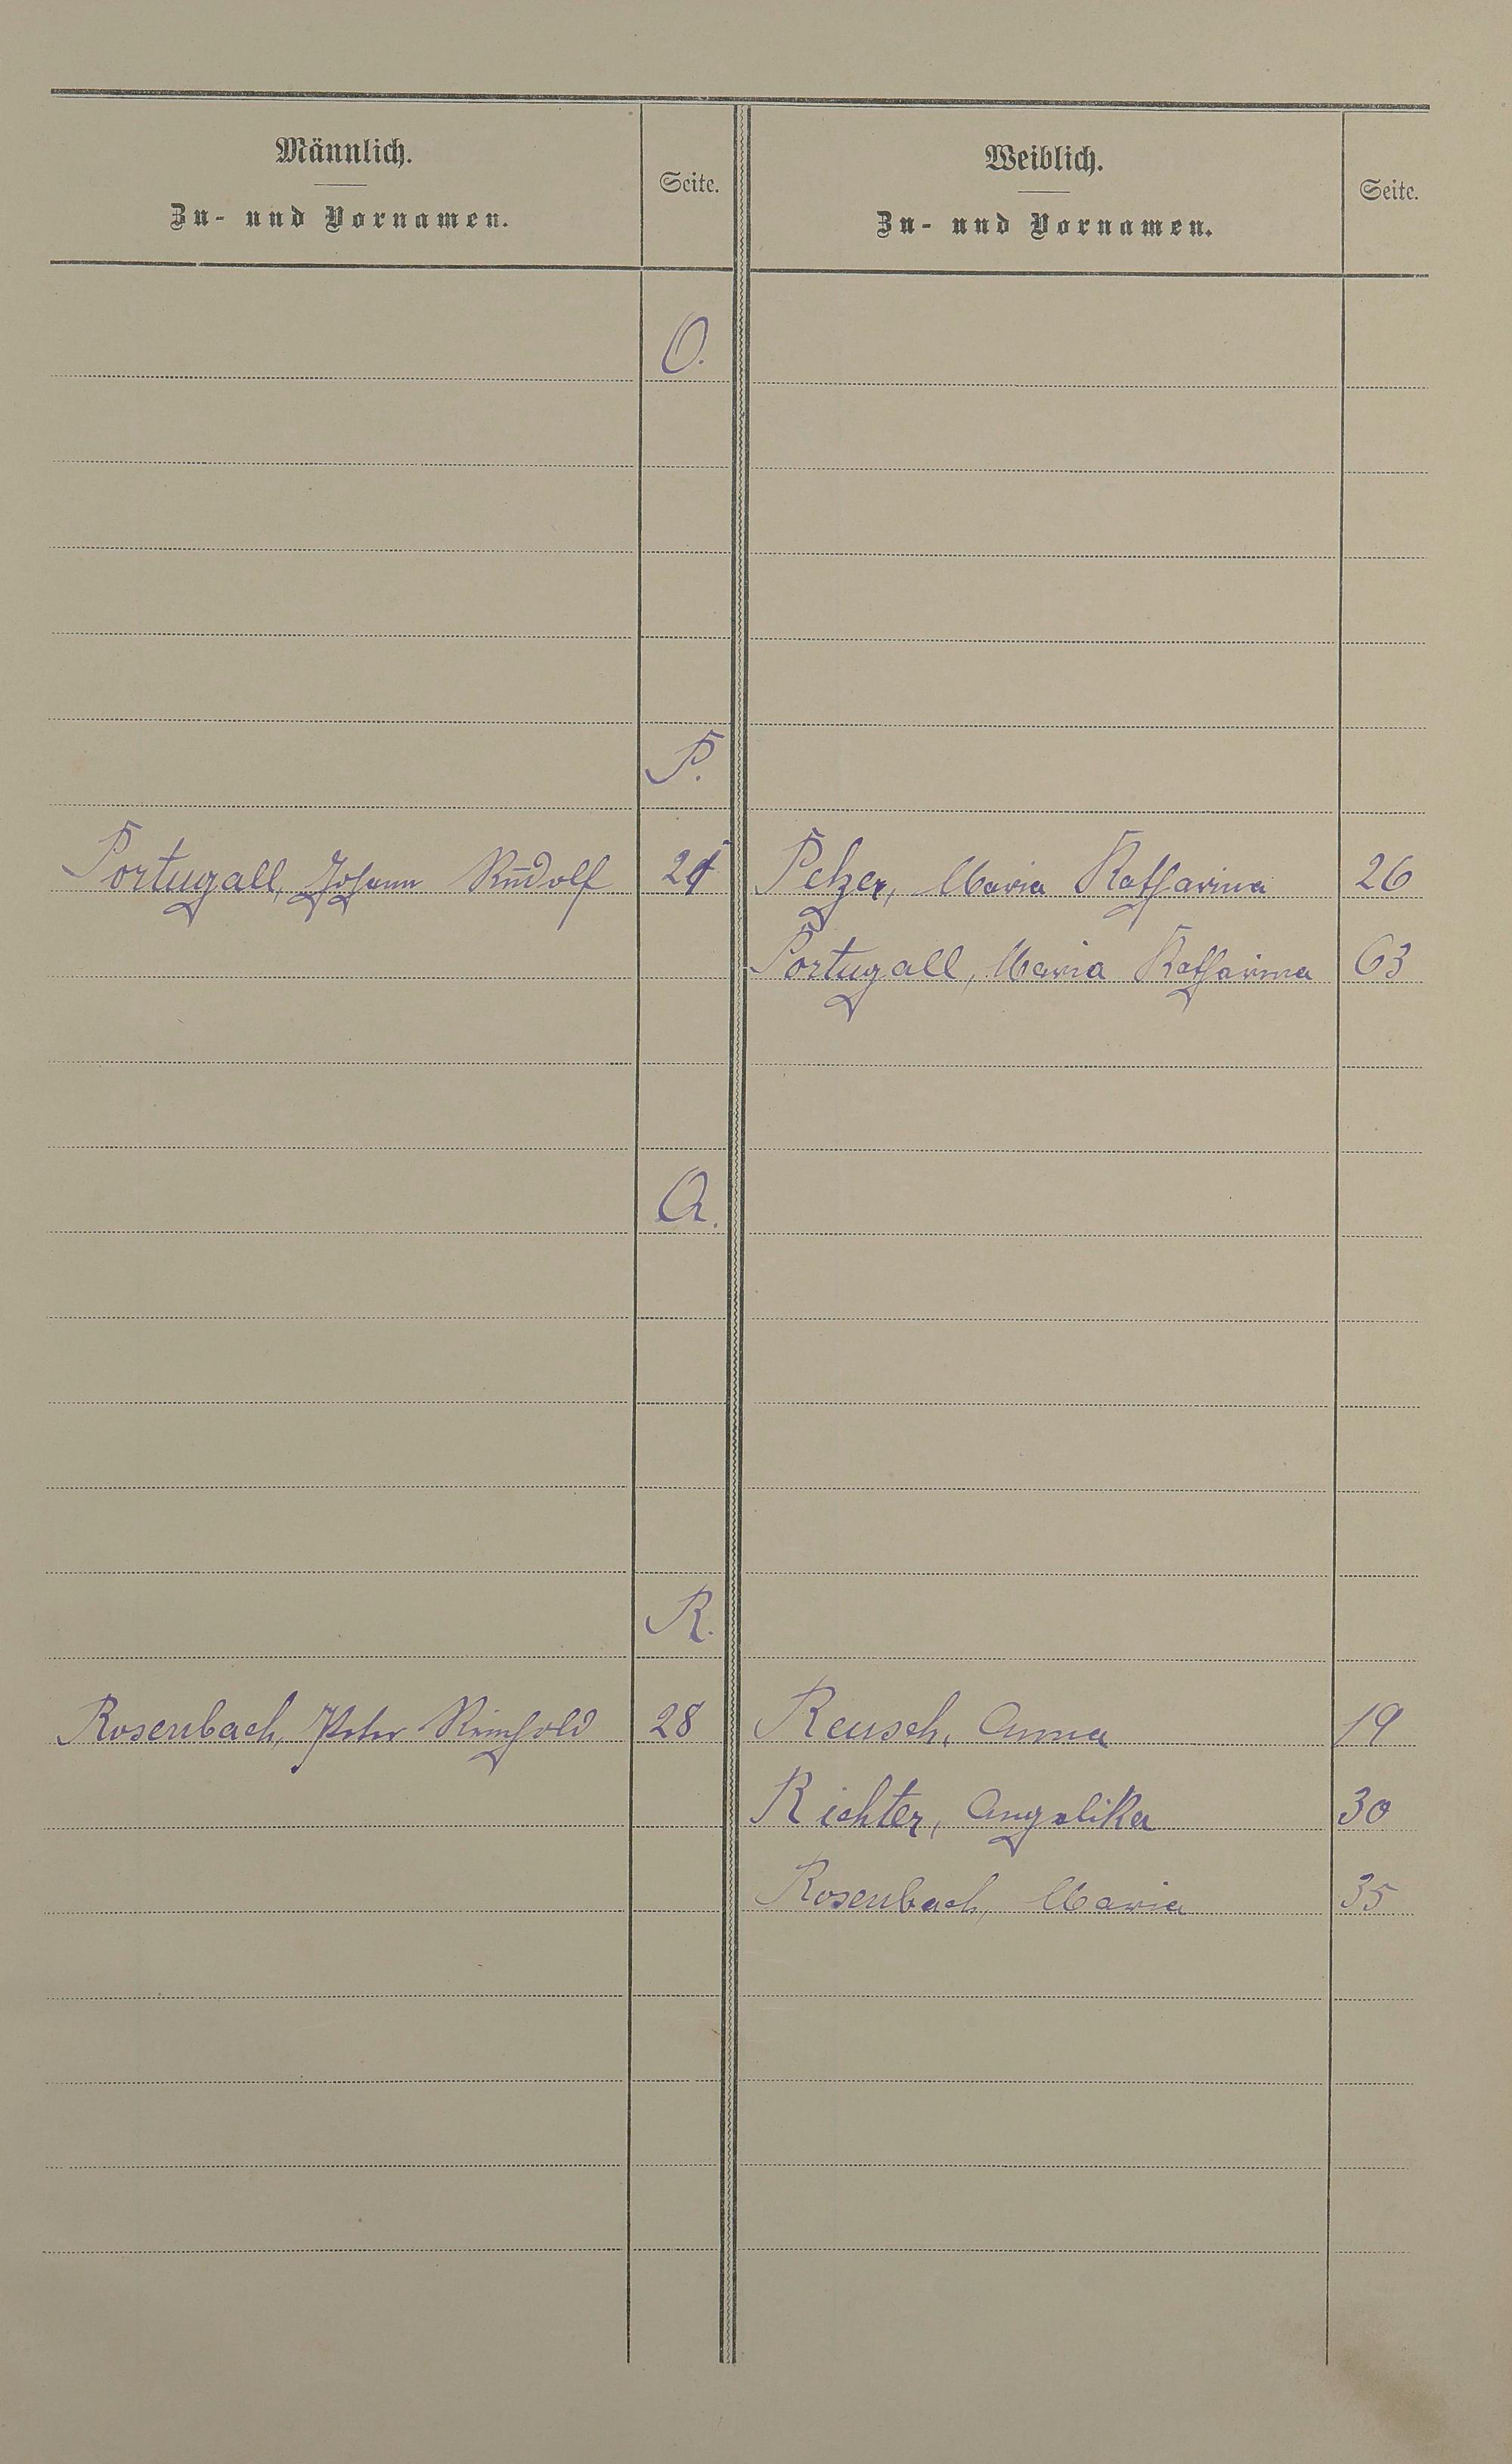 Männlich.
Zu- und Vornamen.
Seite.
Weiblich.
Zu- und Vornamen.
Seite.
O.
P.
Portugall, Johann Rudolf
Pelzer, Maria Katharina 26
Portugall, Maria Katharina 63
Q.
R.
Rosenbach, Peter Reinhold 28 Reusch, Anna 19
Richter, Angelika 30
Rosenbach, Maria 35